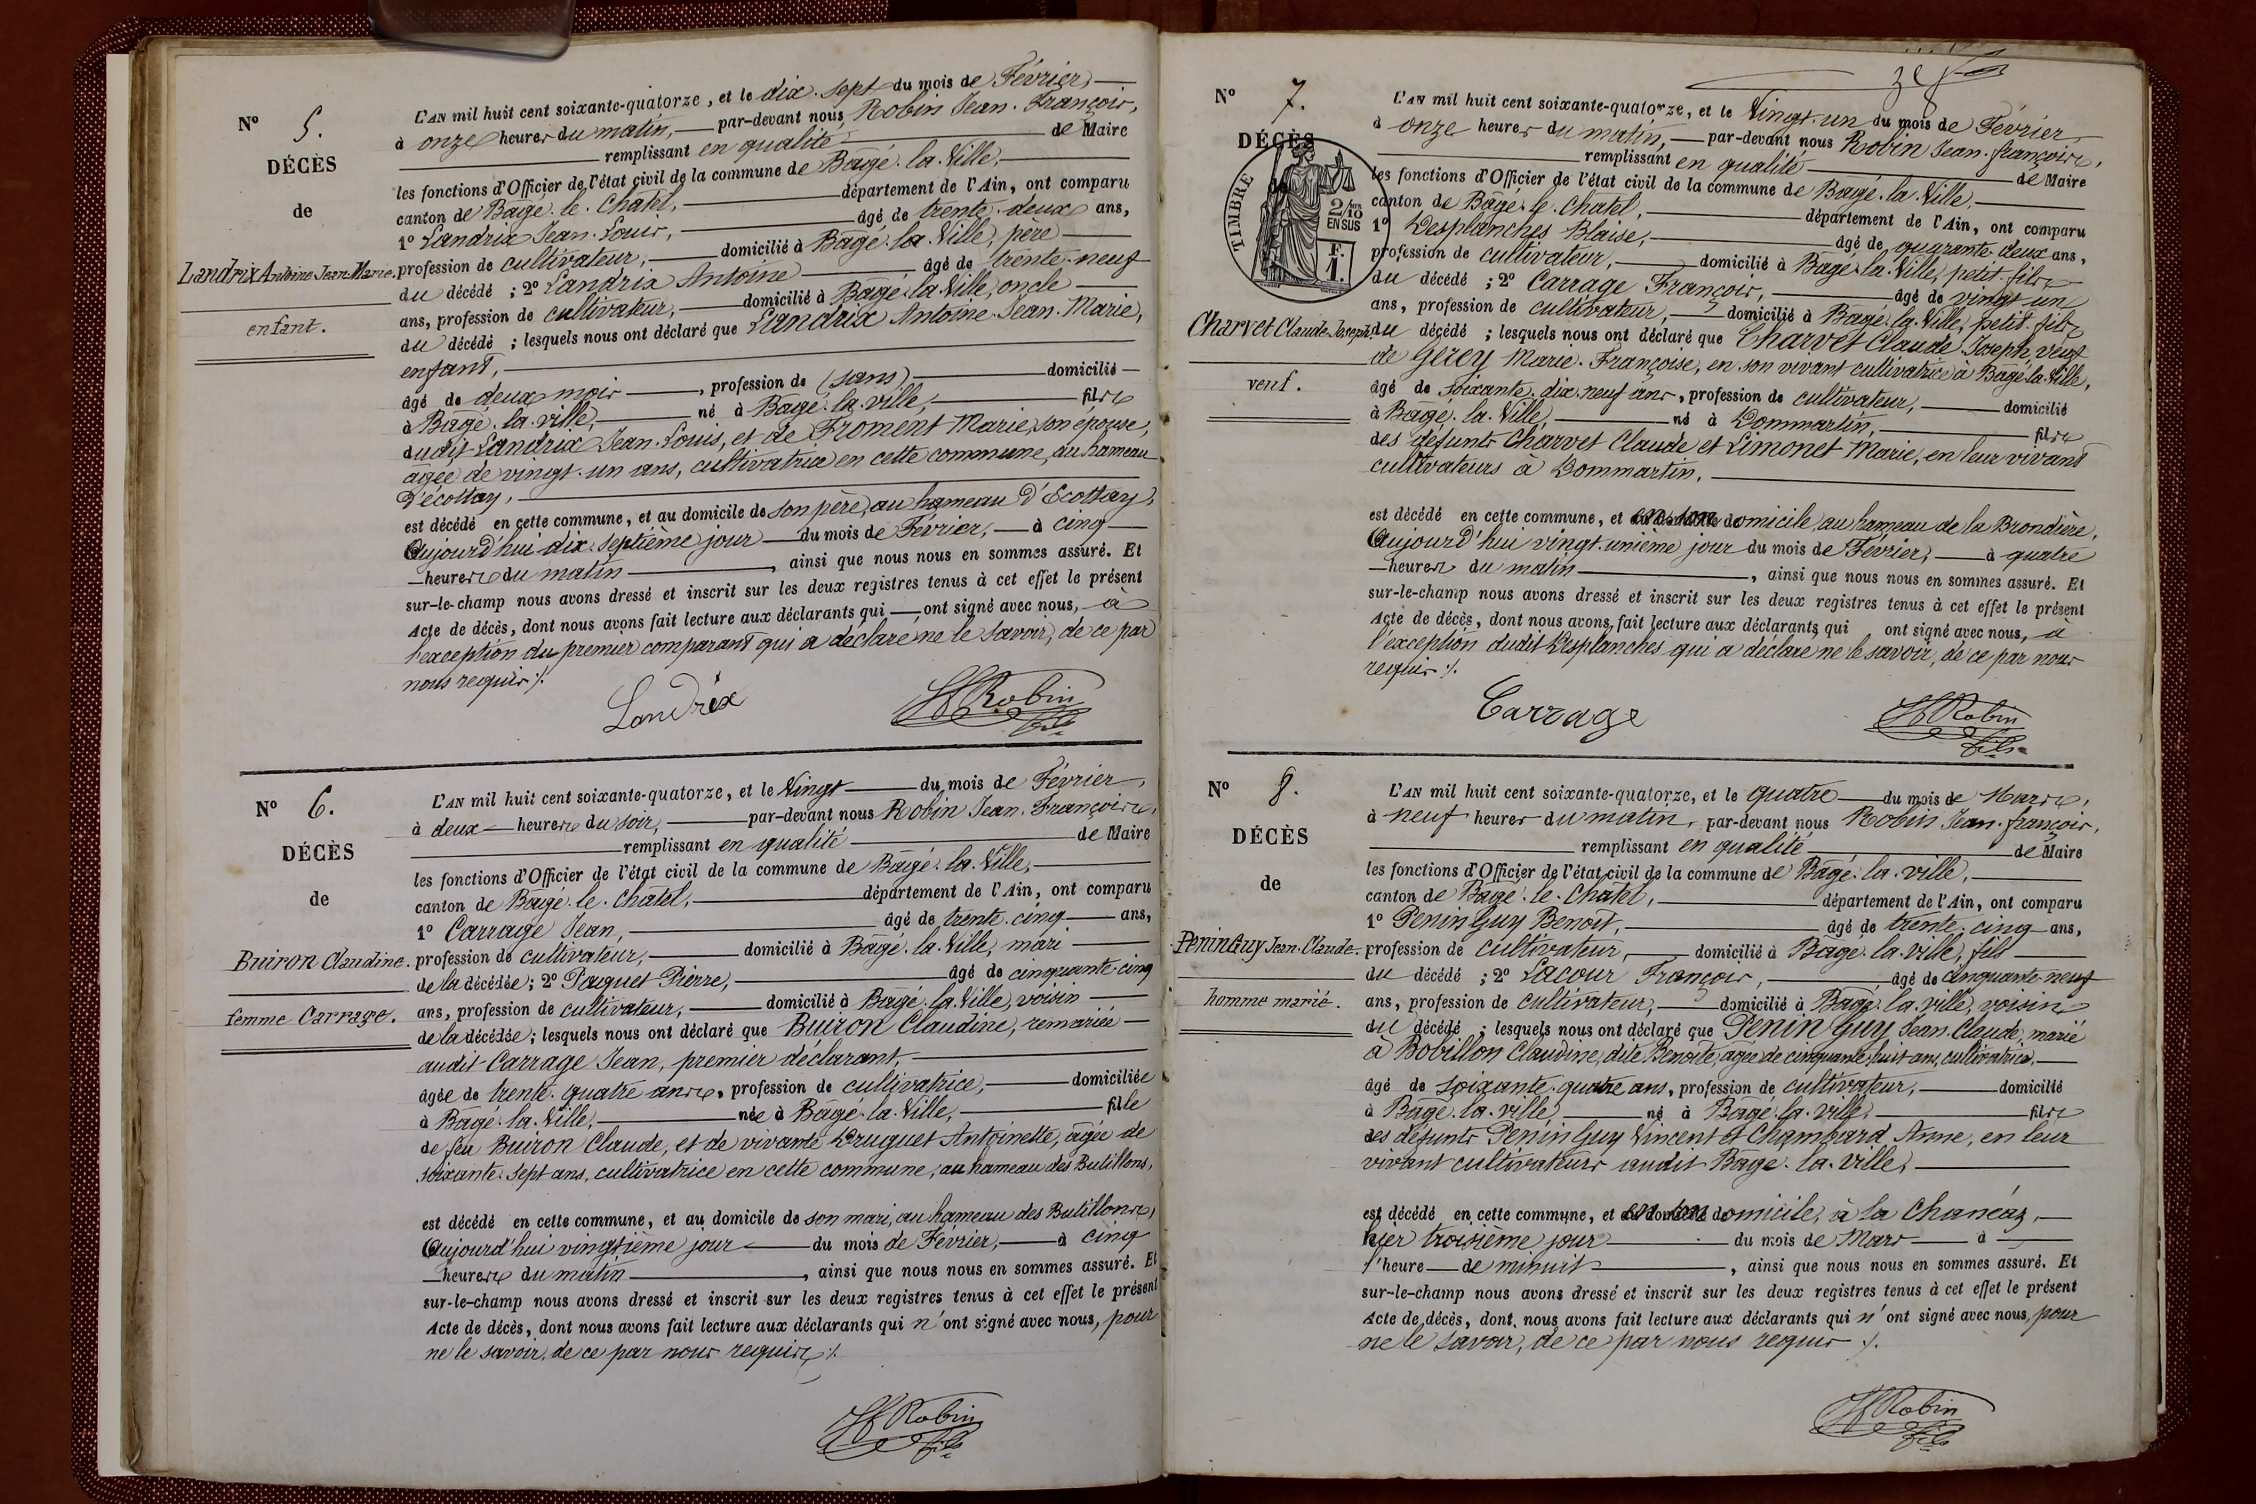 Nº 5.
DÉCÈS
de
Landrix Antoine Jean Marie.
enfant.
L'AN mil huit cent soixante-quatorze, et le dix-sept du mois de Février,
à onze heures du matin, par-devant nous Robin Jean-François,
remplissant en qualité de Maire
les fonctions d'Officier de l'état civil de la commune de Bâgé-la-Ville,
canton de Bâgé-le-Chatel, département de l'Ain, ont comparu
1º Landrix Jean-Louis, âgé de trente-deux ans,
profession de cultivateur, domicilié à Bâgé-la-Ville, père
du décédé ; 2º Landrix Antoine âgé de trente-neuf
ans, profession de cultivateur, domicilié à Bâgé-la-Ville, oncle
du décédé ; lesquels nous ont déclaré que Landrix Antoine-Jean-Marie,
enfant,
âgé de deux mois, profession de (sans) domicilié
à Bâgé-la-ville, né à Bâgé-la-ville, fils
dudit Landrix Jean-Louis, et de Froment Marie, son épouse,
âgée de vingt-un ans, cultivatrice en cette commune, au hameau
d'écottay,
est décédé en cette commune, et au domicile de son père, au hameau d'Ecottay,
Aujourd'hui dix-septième jour du mois de Février, à cinq
heures du matin, ainsi que nous nous en sommes assuré. Et
sur-le-champ nous avons dressé et inscrit sur les deux registres tenus à cet effet le présent
Acte de décès, dont nous avons fait lecture aux déclarants qui ont signé avec nous, à
l'exception du premier comparant qui a déclaré ne le savoir, de ce par
nous requis ./.
Landrix
Robin
fils
Nº 6.
DÉCÈS
de
Buiron Claudine.
femme Carrage.
L'AN mil huit cent soixante-quatorze, et le Vingt du mois de Février,
à deux heures du soir, par-devant nous Robin Jean-François,
remplissant en qualité de Maire
les fonctions d'Officier de l'état civil de la commune de Bâgé-la-Ville,
canton de Bâgé-le-Chatel, département de l'Ain, ont comparu
1º Carrage Jean, âgé de trente-cinq ans,
profession de cultivateur, domicilié à Bâgé-la-Ville, mari
de la décédée ; 2º Pauget Pierre, âgé de cinquante-cinq
ans, profession de cultivateur, domicilié à Bâgé-la-Ville, voisin
de la décédée ; lesquels nous ont déclaré que Buiron Claudine, remariée
audit Carrage Jean, premier déclarant,
âgée de trente-quatre ans, profession de cultivatrice, domiciliée
à Bâgé-la-Ville, née à Bâgé-la-Ville, fille
de feu Buiron Claude, et de vivante Druguet Antoinette, âgée de
soixante-sept ans, cultivatrice en cette commune, au hameau des Butillons,
est décédé en cette commune, et au domicile de son mari, au hameau des Butillons,
Aujourd'hui vingtième jour du mois de Février, à cinq
heures du matin, ainsi que nous nous en sommes assuré. Et
sur-le-champ nous avons dressé et inscrit sur les deux registres tenus à cet effet le présent
Acte de décès, dont nous avons fait lecture aux déclarants qui n'ont signé avec nous, pour
ne le savoir, de ce par nous requis ./.
Robin
fils
Nº 7.
DÉCÈS
TIMBRE
2/10
EN SUS
F.
1.
Charvet Claude-Joseph.
veuf.
L'AN mil huit cent soixante-quatorze, et le Vingt-un du mois de Février
à onze heures du matin, par-devant nous Robin Jean-françois,
remplissant en qualité de Maire
les fonctions d'Officier de l'état civil de la commune de Bâgé-la-Ville,
canton de Bâgé-le-Chatel, département de l'Ain, ont comparu
1º Desplanches Blaise, âgé de quarante-deux ans,
profession de cultivateur, domicilié à Bâgé-la-Ville, petit-fils
du décédé ; 2º Carrage François, âgé de vingt-un
ans, profession de cultivateur, domicilié à Bâgé-la-Ville, petit-fils
du décédé ; lesquels nous ont déclaré que Charvet Claude-Joseph, veuf
de Gérey Marie-Françoise, en son vivant cultivatrice à Bâgé-la-Ville,
âgé de soixante-dix-neuf ans, profession de cultivateur, domicilié
à Bâgé-la-Ville, né à Dommartin, fils
des défunts Charvet Claude et Limonet Marie, en leur vivant
cultivateurs à Dommartin.
est décédé en cette commune, et en son domicile, au hameau de la Brondière,
Aujourd'hui vingt-unième jour du mois de Février, à quatre
heures du matin, ainsi que nous nous en sommes assuré. Et
sur-le-champ nous avons dressé et inscrit sur les deux registres tenus à cet effet le présent
Acte de décès, dont nous avons fait lecture aux déclarants qui ont signé avec nous, à
l'exception dudit Desplanches qui a déclaré ne le savoir, de ce par nous
requis ./.
Carrage
Robin
fils
Nº 8.
DÉCÈS
de
Penin Guy Jean-Claude.
homme marié.
L'AN mil huit cent soixante-quatorze, et le quatre du mois de Mars,
à neuf heures du matin, par-devant nous Robin Jean-françois,
remplissant en qualité de Maire
les fonctions d'Officier de l'état civil de la commune de Bâgé-la-ville,
canton de Bâgé-le-Chatel, département de l'Ain, ont comparu
1º Penin Guy Benoit, âgé de trente-cinq ans,
profession de cultivateur, domicilié à Bâgé-la-ville, fils
du décédé ; 2º Lacour François, âgé de cinquante-neuf
ans, profession de cultivateur, domicilié à Bâgé-la-ville, voisin
du décédé ; lesquels nous ont déclaré que Penin Guy Jean-Claude, marié
à Bovillon Claudine, dite Benoite, âgée de cinquante-huit ans, cultivatrice,
âgé de soixante-quatre ans, profession de cultivateur, domicilié
à Bâgé-la-ville, né à Bâgé-la-ville, fils
des défunts Penin Guy Vincent et Chambard Anne, en leur
vivant cultivateurs audit Bâgé-la-ville,
est décédé en cette commune, et en son domicile, à la Chanéaz,
hier troisième jour du mois de Mars à
l'heure de minuit, ainsi que nous nous en sommes assuré. Et
sur-le-champ nous avons dressé et inscrit sur les deux registres tenus à cet effet le présent
Acte de décès, dont nous avons fait lecture aux déclarants qui n'ont signé avec nous, pour
ne le savoir, de ce par nous requis ./.
Robin
fils